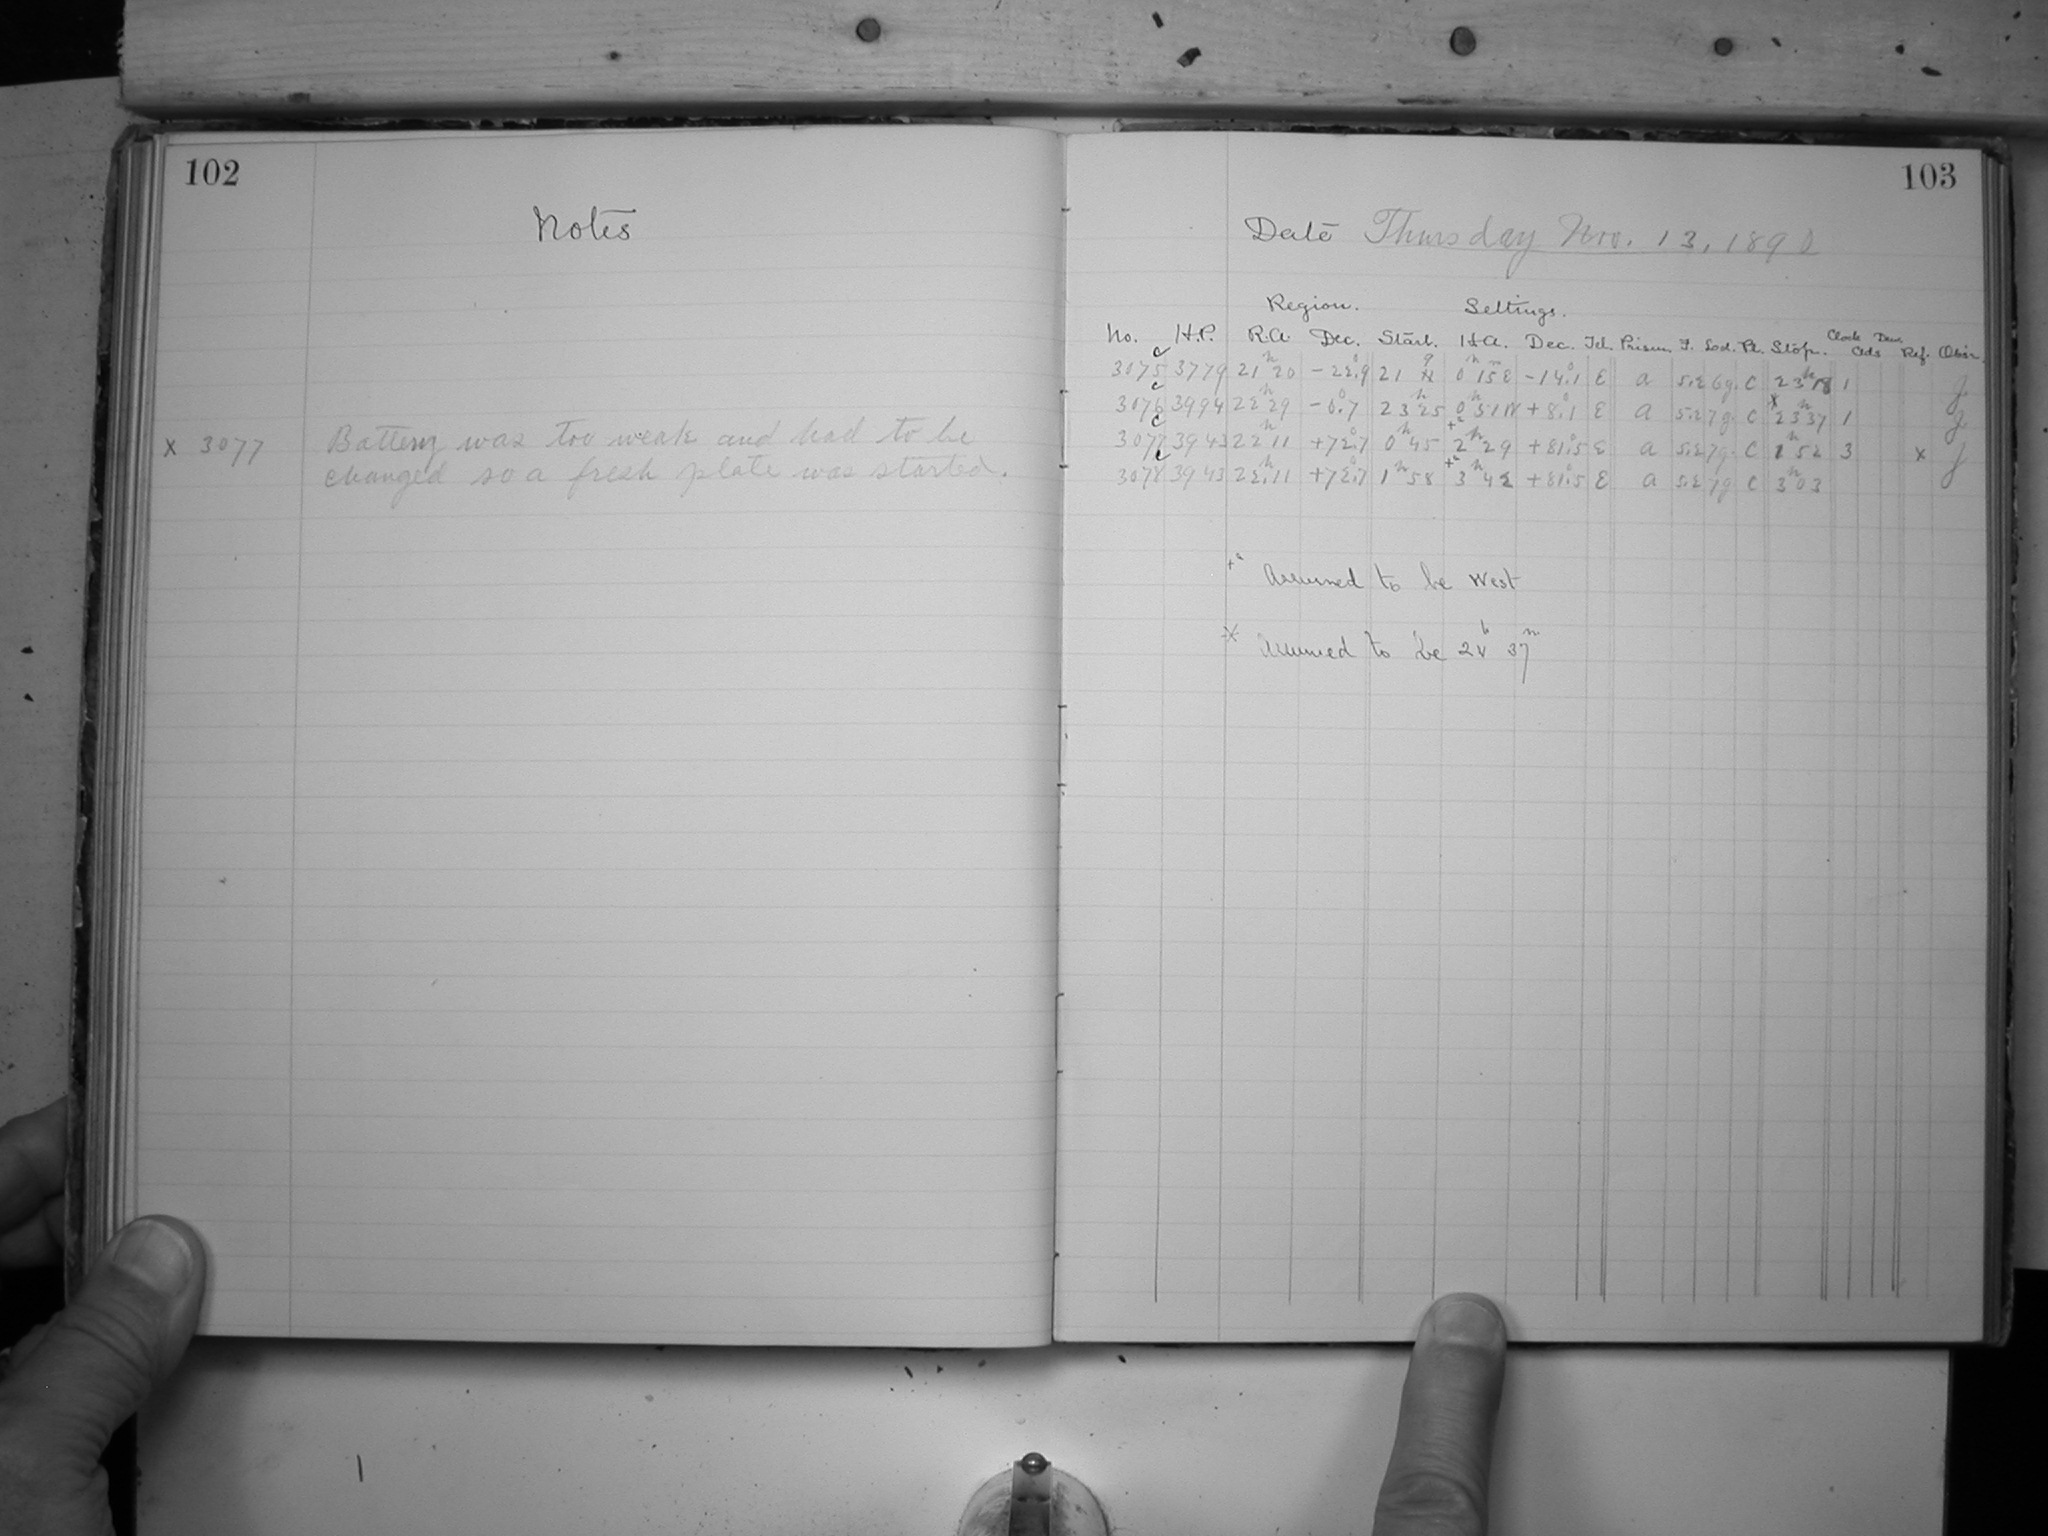 102
Notes
x 3077 Battery was too weak and had to be
changed so a fresh plate was started.
103
Date Thursday Nov. 13, 1890
Region. Settings.
No. H.P. R.A. Dec. Start. H.A. Dec. Tel. Prism. F. Lod. Pl. Stop. Clock Clds Dew. Ref. Obsr.
3075 c 3779 21h 20 -22°.9 21 0h 15m E -14°.1 E a 5.2 6g. C 23h 18 1 J.
3076 c 3994 22h 29 -0°.7 23h 25 0h 51 W +8°.1 E a 5.2 7g. C x 23h 37 1 J
3077 c 3943 22h 11 +72°.7 0h 45 +a 2h 29 +81°.5 E a 5.2 7g. C 1h 52 3 x J
3078 c 3943 22h 11 +72°.7 1h 58 +a 3h 42 +81°.5 E a 5.2 7g C 3h 03
+a Assumed to be West
x Assumed to be 24h 37m